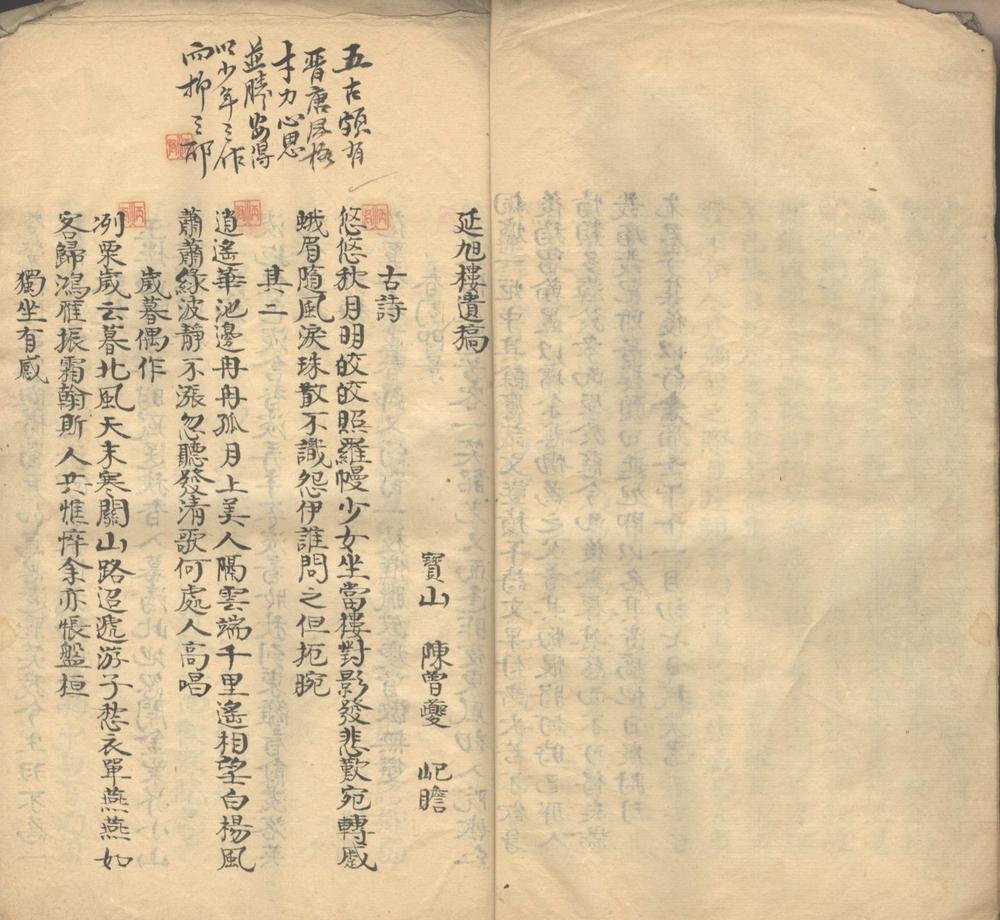 五古頗有
晋唐風格
才力心思
並勝安得
以少年之作
而抑之耶
延旭樓遺稿
寶山 陳曾夔 屺瞻
古詩
悠悠秋月明皎皎照羅幔少女坐當樓對影發悲歎宛轉感
蛾眉随風淚珠散不識怨伊誰問之但扼腕
其二
逍遙華池邊冉冉孤月上美人隔雲端千里遙相望白楊風
蕭蕭綠波靜不漲忽聽發清歌何處人高唱
歲暮偶作
冽栗歲云暮北風天末寒關山路迢遞游子愁衣單燕燕如
客歸鴻雁振霜翰斯人共憔悴余亦悵盤桓
獨坐有感